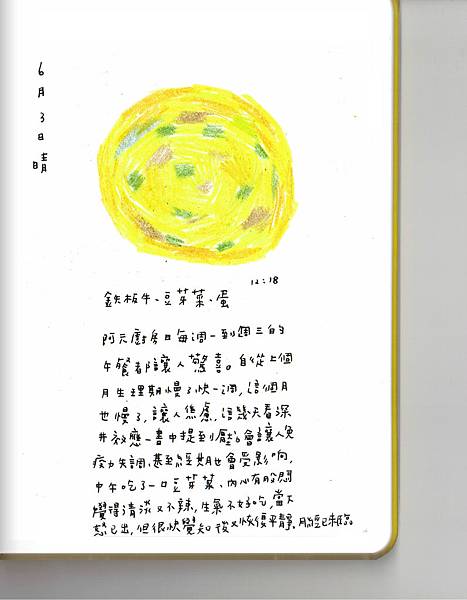 6月3日晴
12:18
鉄板牛、豆芽菜、蛋
阿元廚房日每週一到週三的
午餐都讓人驚喜。自從上個
月生理期慢了快一週,這個月
也慢了,讓人焦慮,這幾天看深
井效應一書中提到壓力會讓人免
疫力失調,甚至經期也會受影響,
中午吃了一口豆芽菜、內心有股悶
覺得清淡又不辣,生氣不好吃,當下
怒已出,但很快覺知後又恢復平靜,月經已來臨。